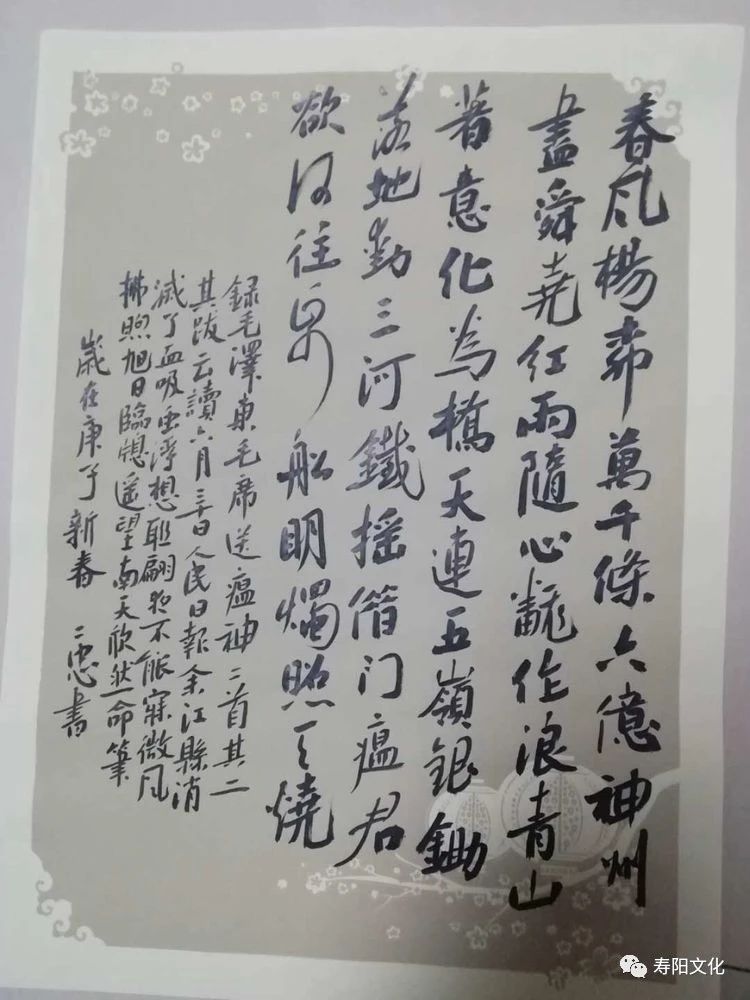 春风楊柳萬千條六億神州
盡舜尭红雨隨心飜作浪青山
著意化為橋天連五嶺銀鋤
落地動三河鐵摇借问瘟君
欲何往纸船明燭照天燒
録毛澤東毛席送瘟神二首其二
其跋云讀六月三十日人民日報余江縣消
滅了血吸虫浮想联翩夜不能寐微风
拂煦旭日臨窻遥望南天欣然命筆
歲在庚子新春二忠書
寿阳文化